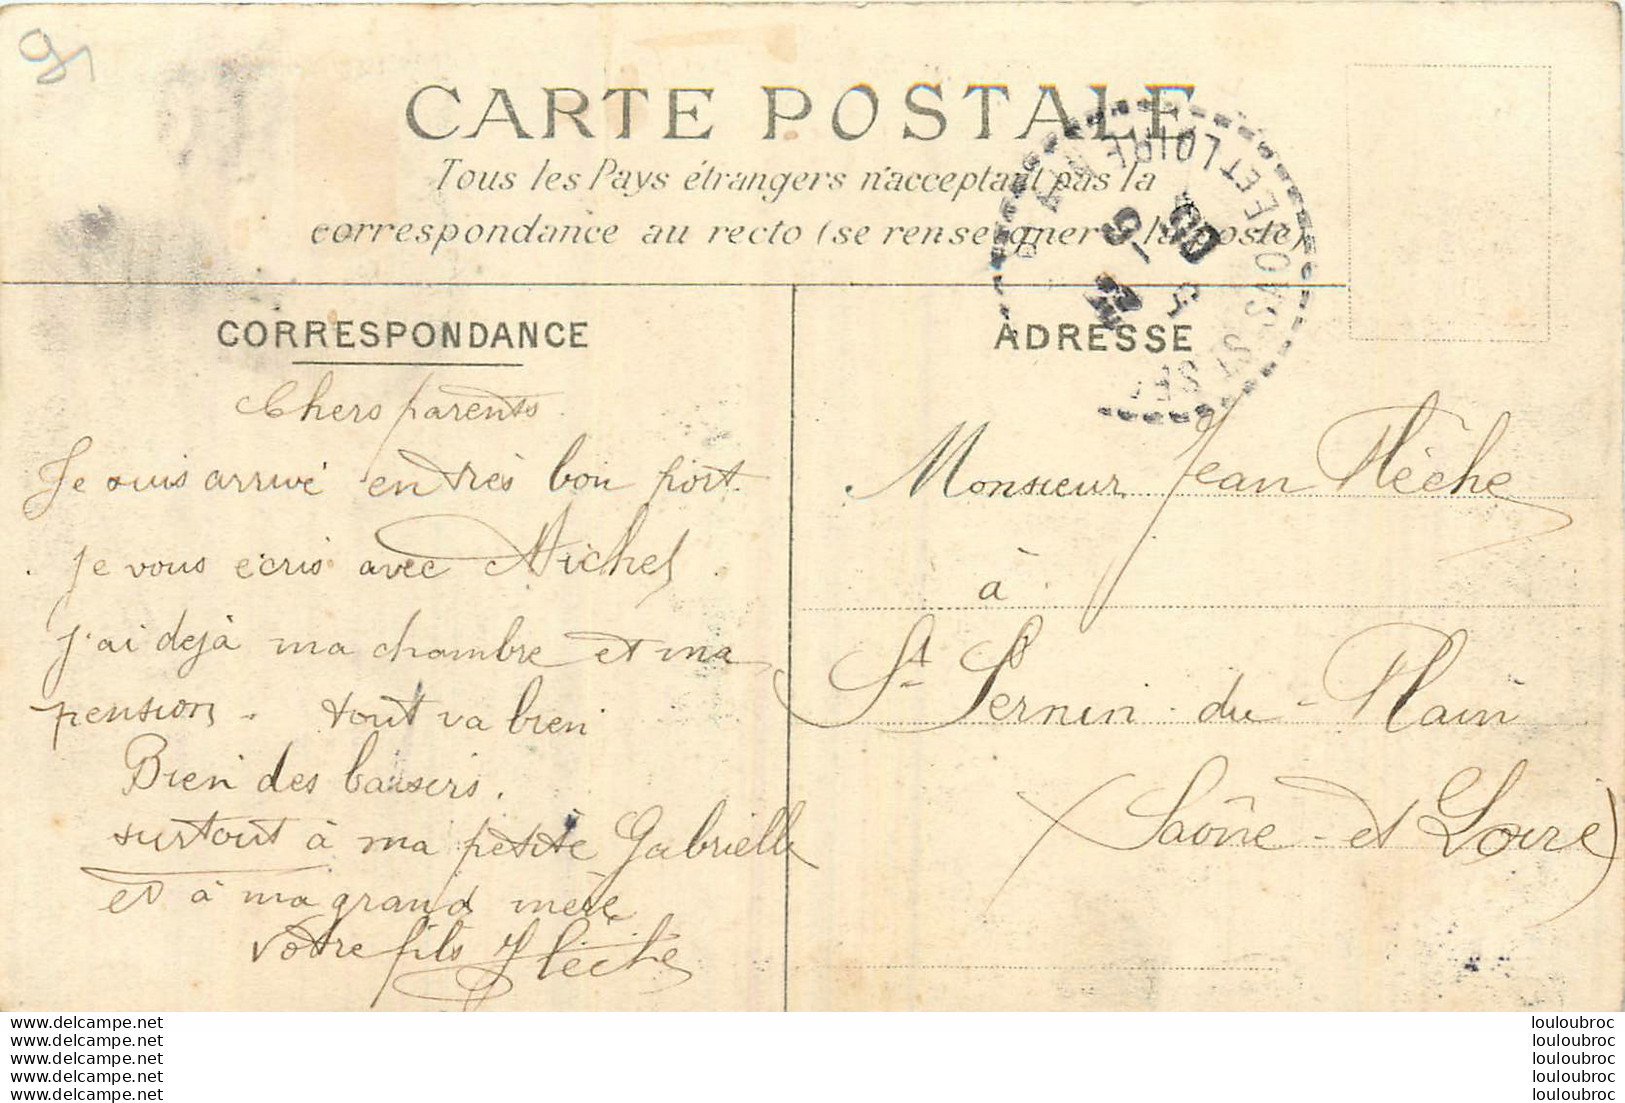 91
CARTE POSTALE
Tous les Pays étrangers n'acceptant pas la
correspondance au recto (se renseigner à la poste)
CORRESPONDANCE
Chers parents.
Je suis arrivé en très bon port.
je vous écris avec Michel.
j'ai dejà ma chambre et ma
pension. tout va bien
Bien des baisers.
surtout à ma petite Gabrielle
et à ma grand mère
Votre fils
ADRESSE
Monsieur Jean Flèche
à
St Sernin-du-Plain
(Saône-et Loire)
SAONE ET LOIRE
www.delcampe.net
www.delcampe.net
www.delcampe.net
www.delcampe.net
www.delcampe.net
louloubroc
louloubroc
louloubroc
louloubroc
louloubroc